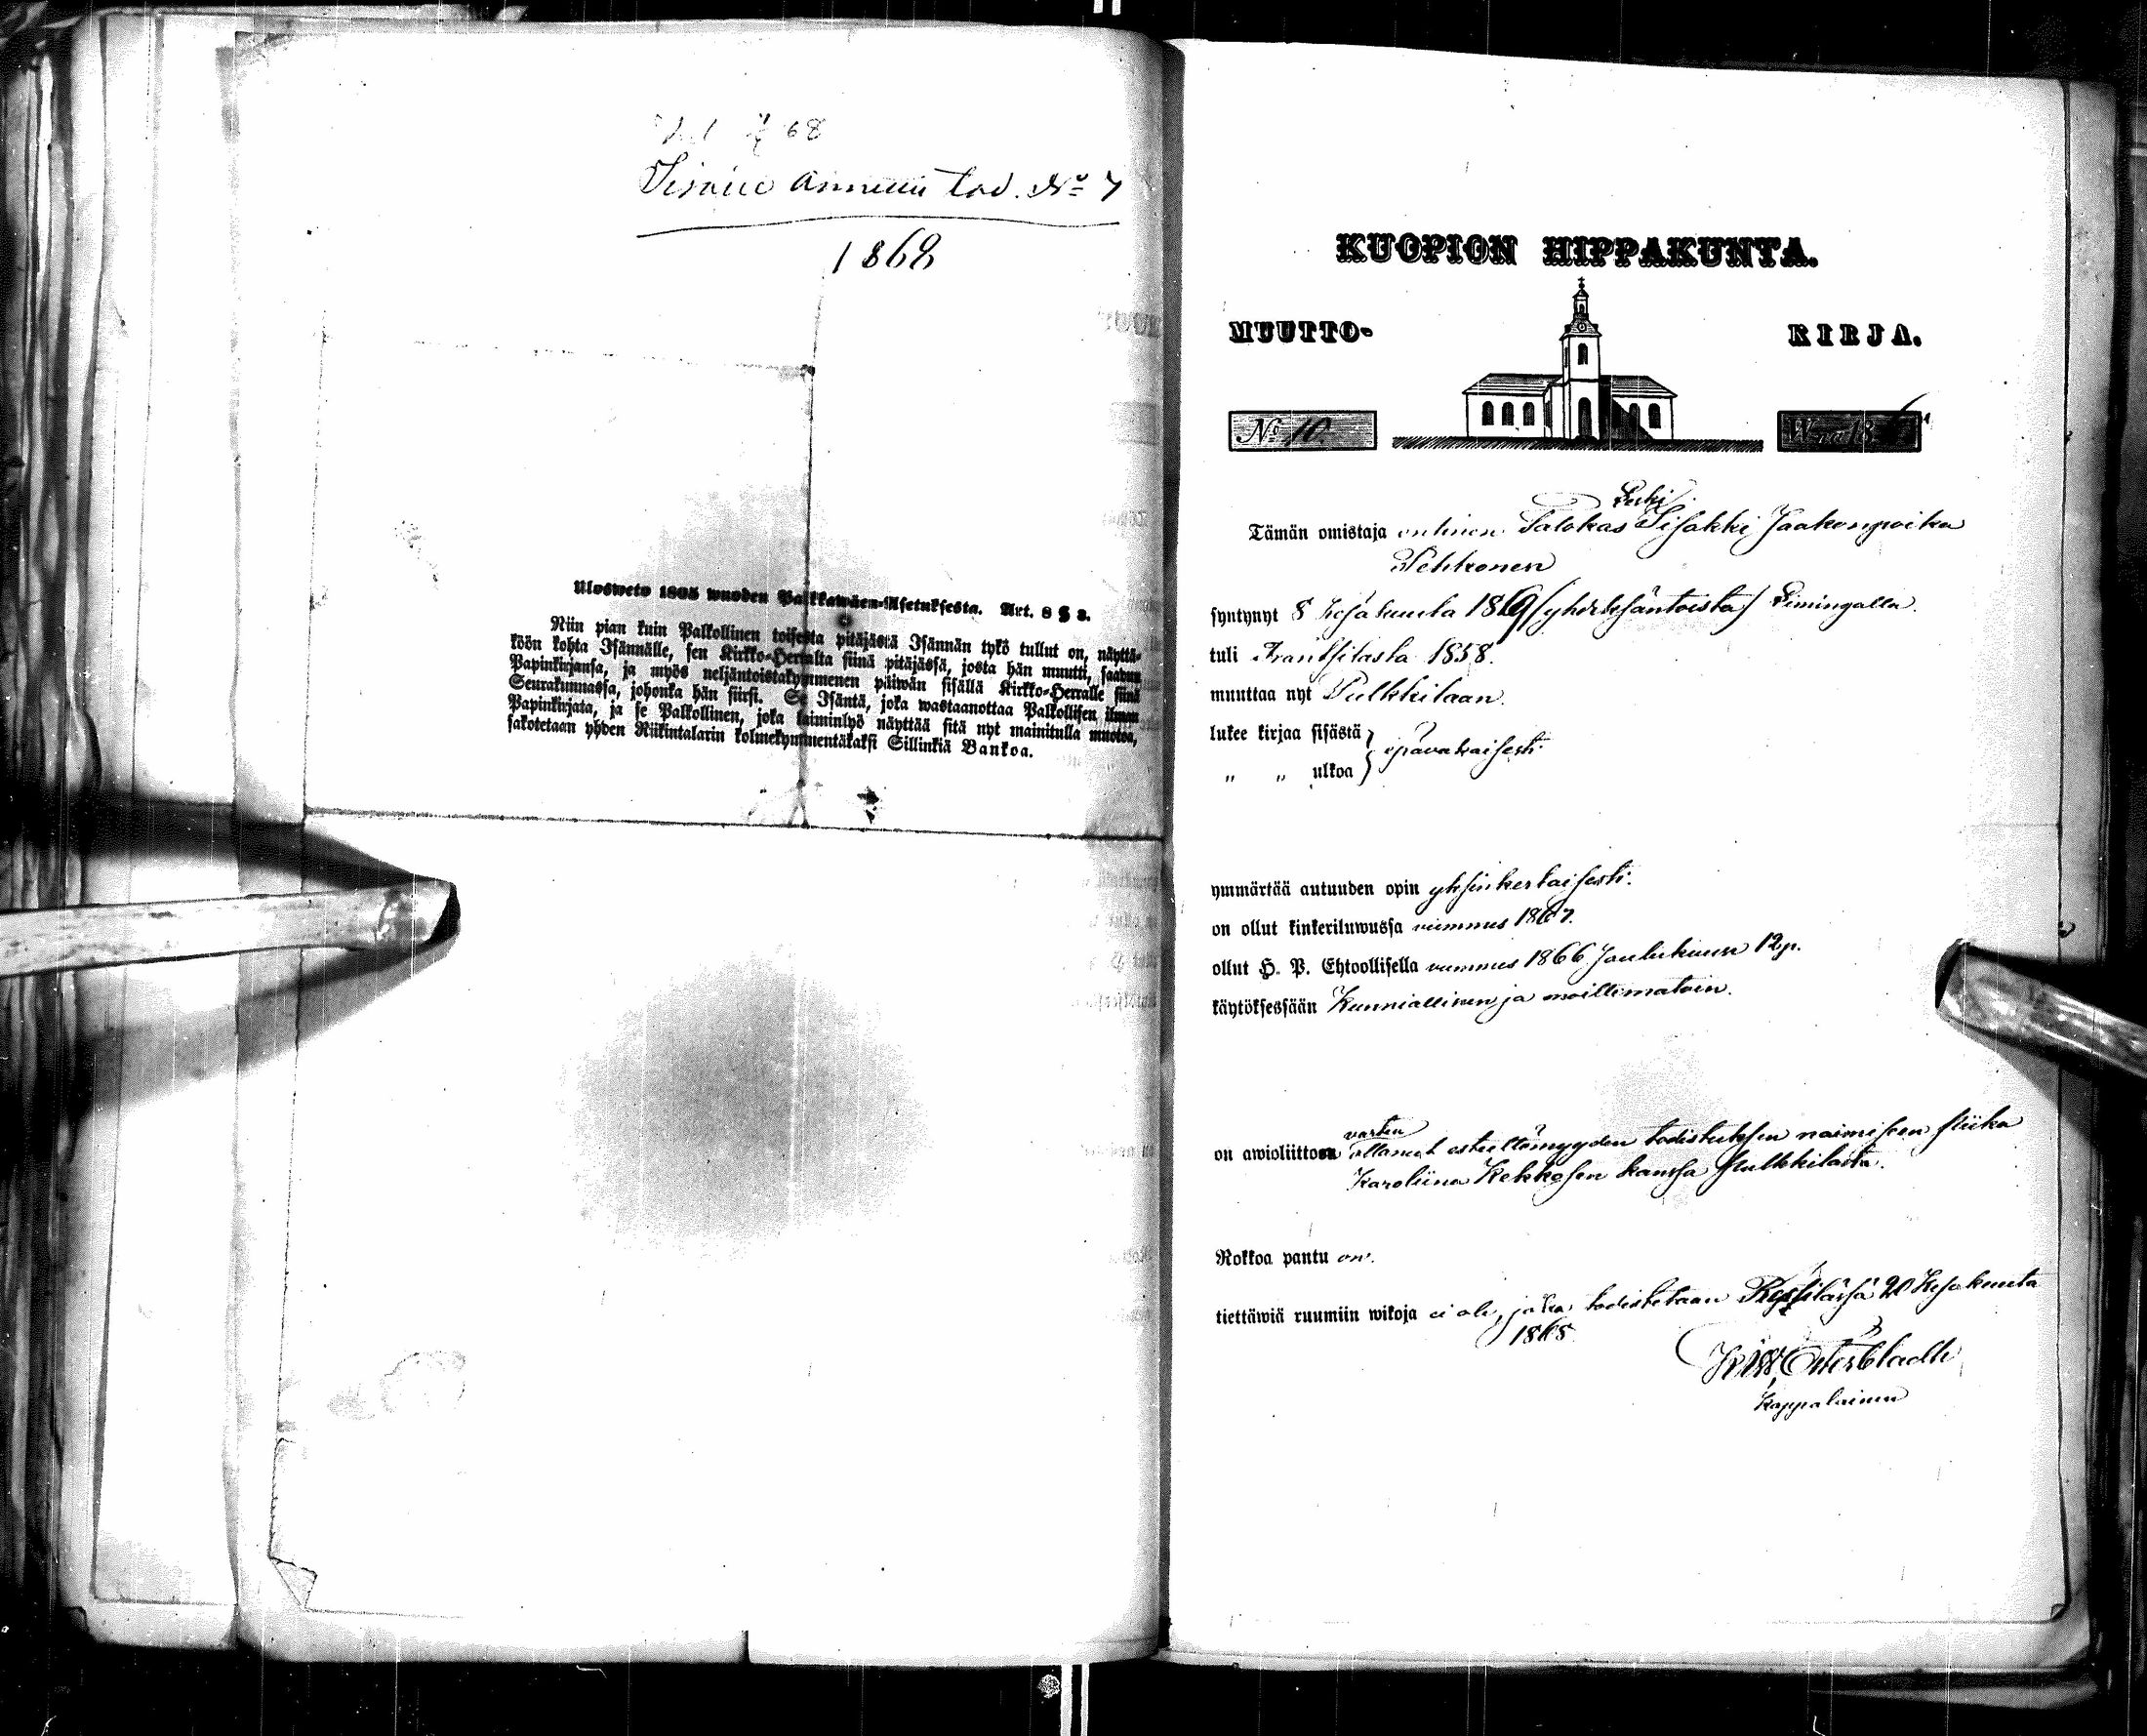 68
annettu tod. No 7
1868
Ulosweto 1805 wuoden Palkkawäen-Asetuksesta. Art. 8 § 3.
Niin pian kuin Palkollinen toisesta pitäjästä Isännän tykö tullut on, näyttä-
köön kohta Isännälle, sen Kirkko-Herralta siinä pitäjässä, josta hän muutti, saadun
Papinkirjansa, ja myös neljäntoistakymmenen päiwän sisällä Kirkko-Herralle siinä
Seurakunnassa, johonka hän siirsi. Se Isäntä, joka wastaanottaa Palkollisen ilman
Papinkirjata, ja se Palkollinen, joka laiminlyö näyttää sitä nyt mainitulla muotoa,
sakotetaan yhden Riikintalarin kolmekymmentäkaksi Sillinkiä Bankoa.
KUOPION HIPPAKUNTA.
MUUTTO- KIRJA.
No 10.
Leski
Tämän omistaja entinen Talokas Iisakki Jaakonpoika
Pehkonen
syntynyt 8 Kesäkuuta 1819 (yhdeksäntoista) Kiimingalla.
tuli Frantsilasta 1858.
muuttaa nyt Pulkkilaan.
lukee kirjaa sisästä } epävakaisesti.
" " ulkoa
ymmärtää autuuden opin yksinkertaisesti.
on ollut kinkeriluwussa viimmus 1867.
ollut H. P. Ehtoollisella viimmus 1866 Joulukuun 12 p.
käytöksessään Kunniallinen ja moittimatoin.
varten
on awioliittoon ottanut esteettömyyden todistuksen naimiseen piika
Karoliina Kekkosen kanssa Pulkkilasta.
Rokkoa pantu on.
tiettäwiä ruumiin wikoja ei ole, joka todistetaan 20 Kesäkuuta
1868.
Österbladh
Kappalainen